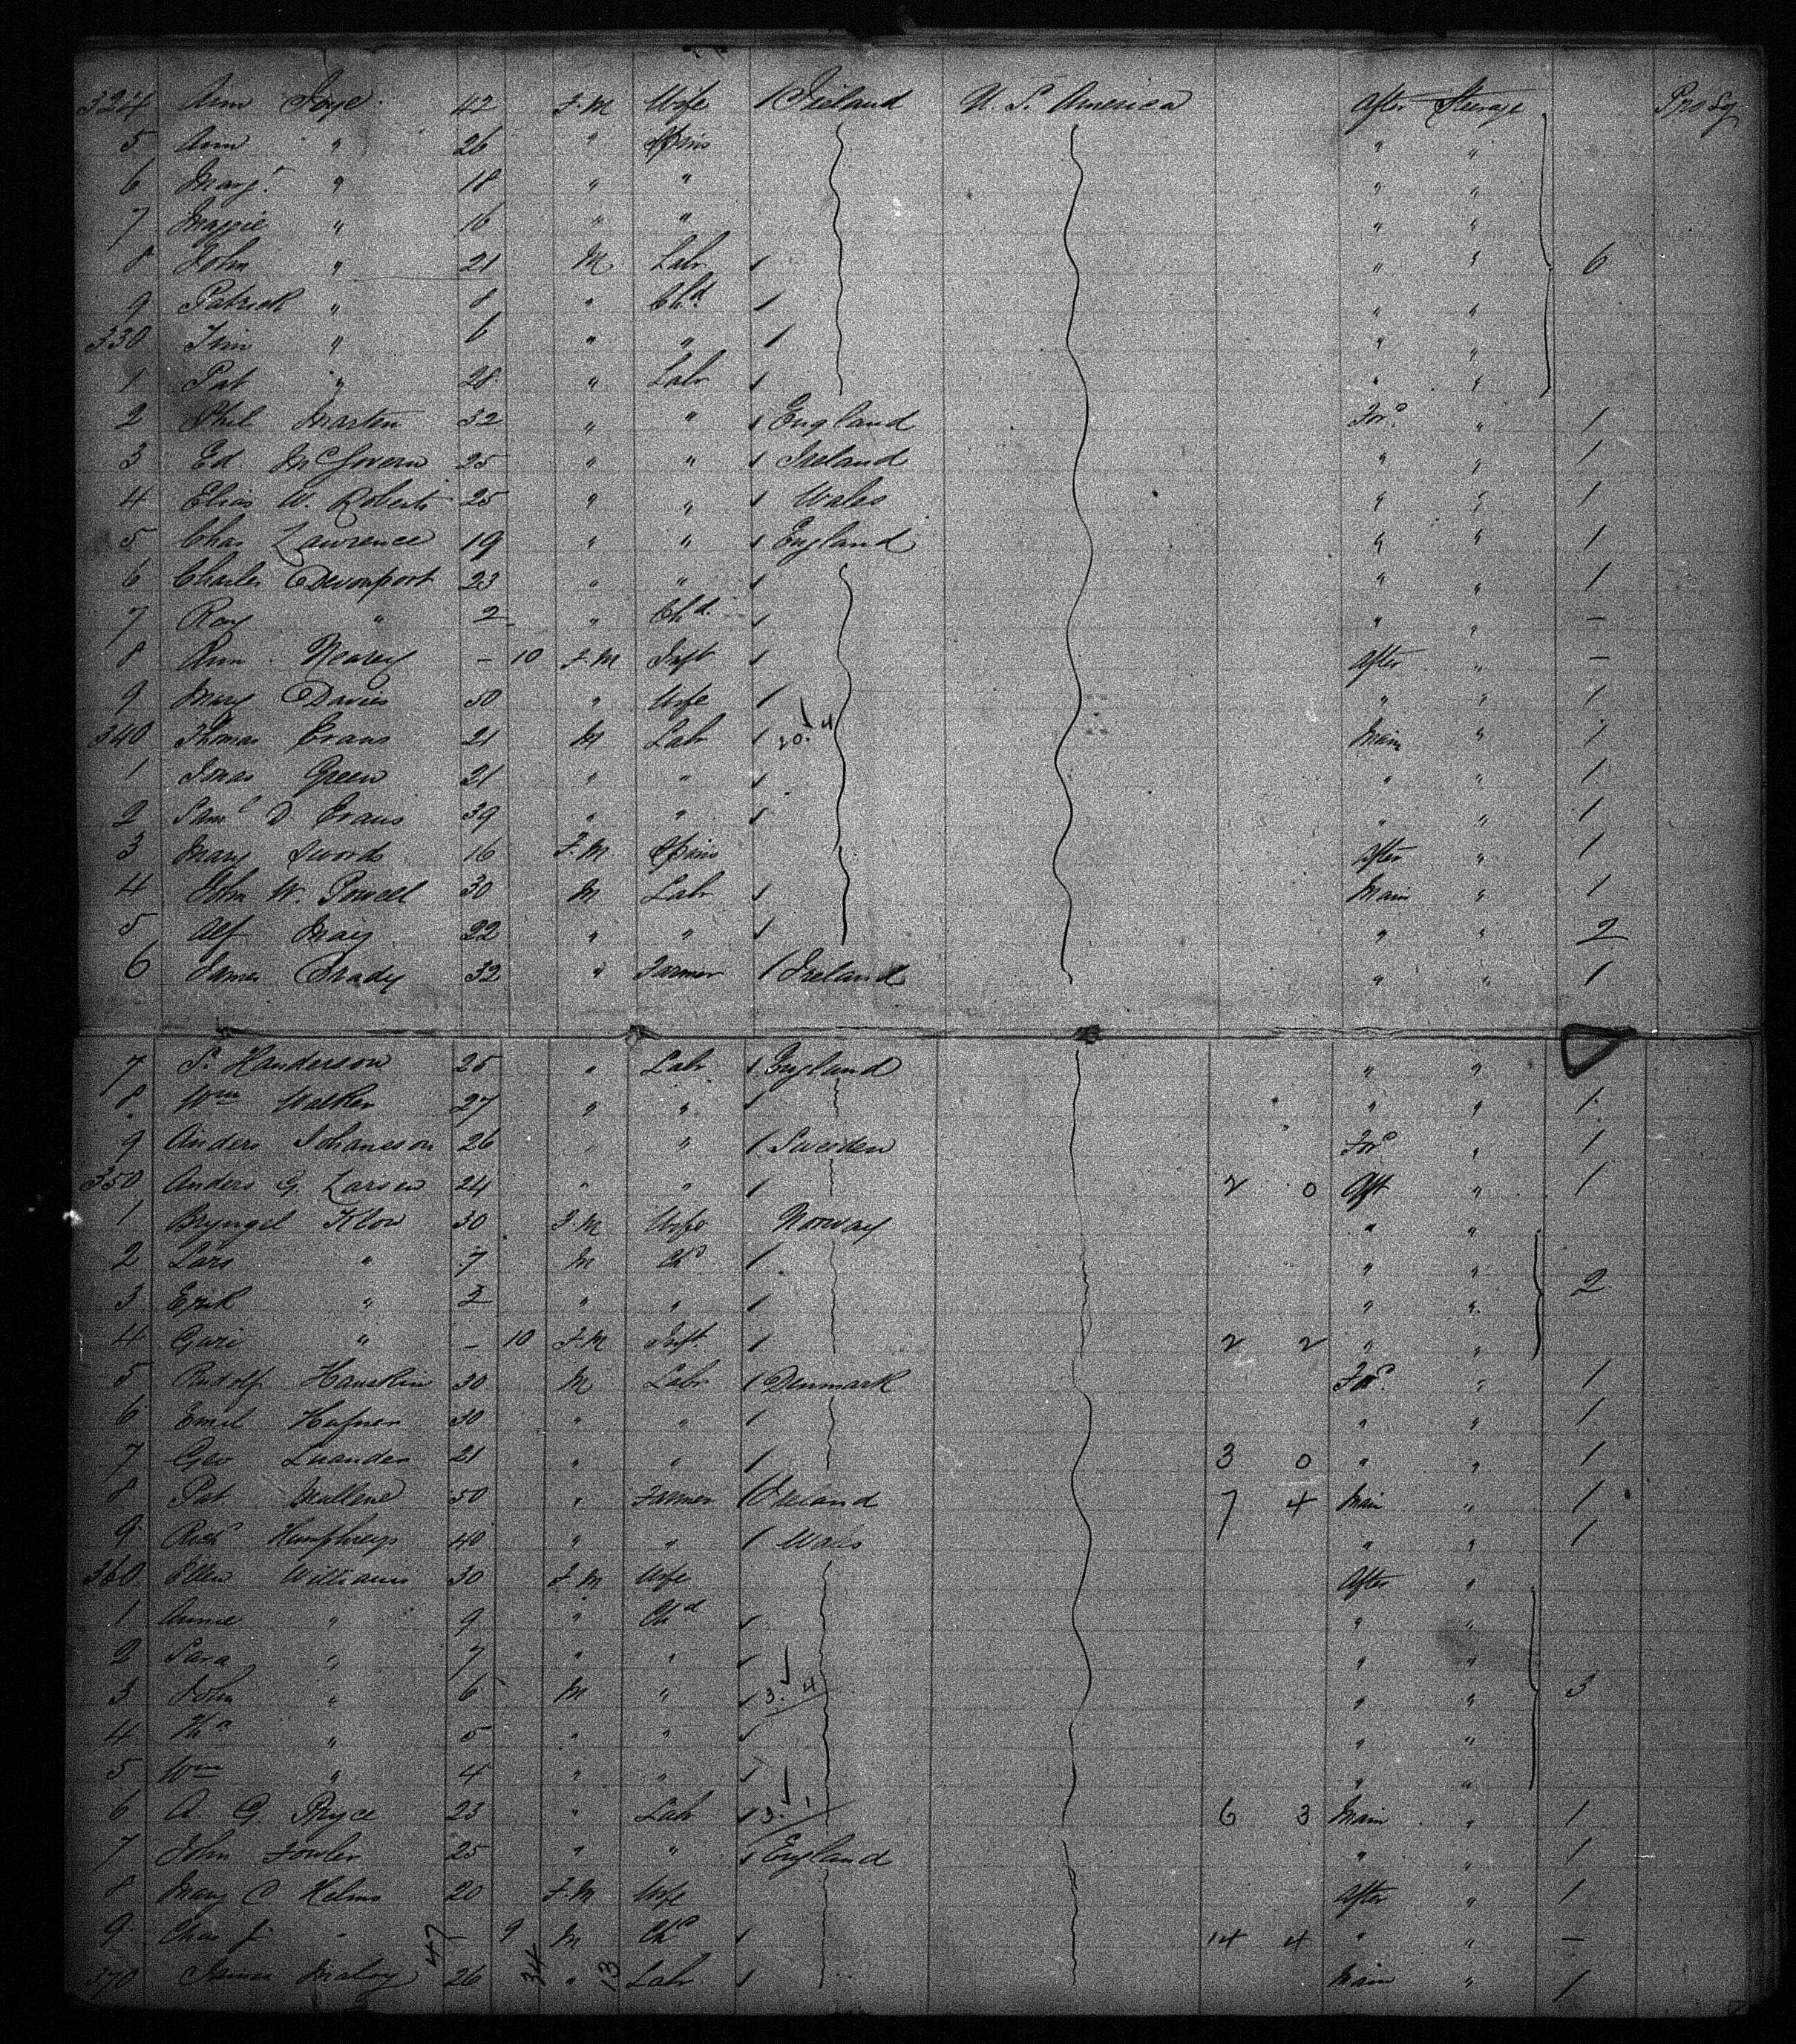 324 Ann Foye 42 F.M Wife Ireland U.S. America After Steerage Pro Sg
5 Ann " 26 " Spins " "
6 Margt " 18 " " " "
7 Maggie " 16 " " " "
8 John " 21 M Labr " " 6
9 Patrick " 8 " Chd " "
330 Tim " 6 " " " "
1 Pat " 28 " Labr " "
2 Phil Marten 32 " " England For'd " 1
3 Ed. McGovern 25 " " Ireland " " 1
4 Elias W. Roberts 25 " " Wales " " 1
5 Chas Lawrence 19 " " England " " 1
6 Charles Devonport 23 " " " " 1
7 Ray " 2 " Chd. " " –
8 Ann Nearey – 10 F.M Inft After " –
9 Mary Davies 50 " Wife " " 1
340 Thomas Evans 21 M Labr 20. 4 Main " 1
1 Jonas Green 21 " " " " 1
2 Saml D Evans 39 " " " " 1
3 Mary Swords 16 F.M Spins After " 1
4 John W. Powell 30 M Labr Main " 1
5 Alf May 22 " " " " 2
6 James Brady 32 " Farmer Ireland " " 1
7 S. Handerson 25 " Labr England " "
8 Wm Walker 27 " " " " 1
9 Anders Johanson 26 " " Sweden For'd " 1
350 Anders G. Larsen 24 " " 2 0 Aft " 1
1 Bryngel Klow 30 F.M Wife Norway " "
2 Lars " 7 M Chd " " 2
3 Erik " 3 " " " "
4 Guri " – 10 F.M Inft. 2 2 " "
5 Rudolf Hanskin 30 M Labr Denmark For'd. " 1
6 Emil Hafner 30 " " " " 1
7 Geo Luander 21 " " 3 0 " " 1
8 Pat Mullene 50 " Farmer Ireland 7 4 Main " 1
9 Richd Humphreys 40 " " Wales " " 1
360 Ellen Williams 30 F.M Wife After "
1 Annie " 9 " Chd " "
2 Sara " 7 " " " "
3 John " 6 M " 3. 4 " " 3
4 " 5 " " " "
5 Wm " 4 " " " "
6 A. G. Pryce 23 " Labr 3. 1 6 3 Main " 1
7 John Fowler 25 " " England " " 1
8 Mary C Helms 20 F.M Wife After " 1
9 Chas J. " – 9 M Chd 14 4 " " –
370 James Maloy 26 " Labr Main " 1
47 34 13